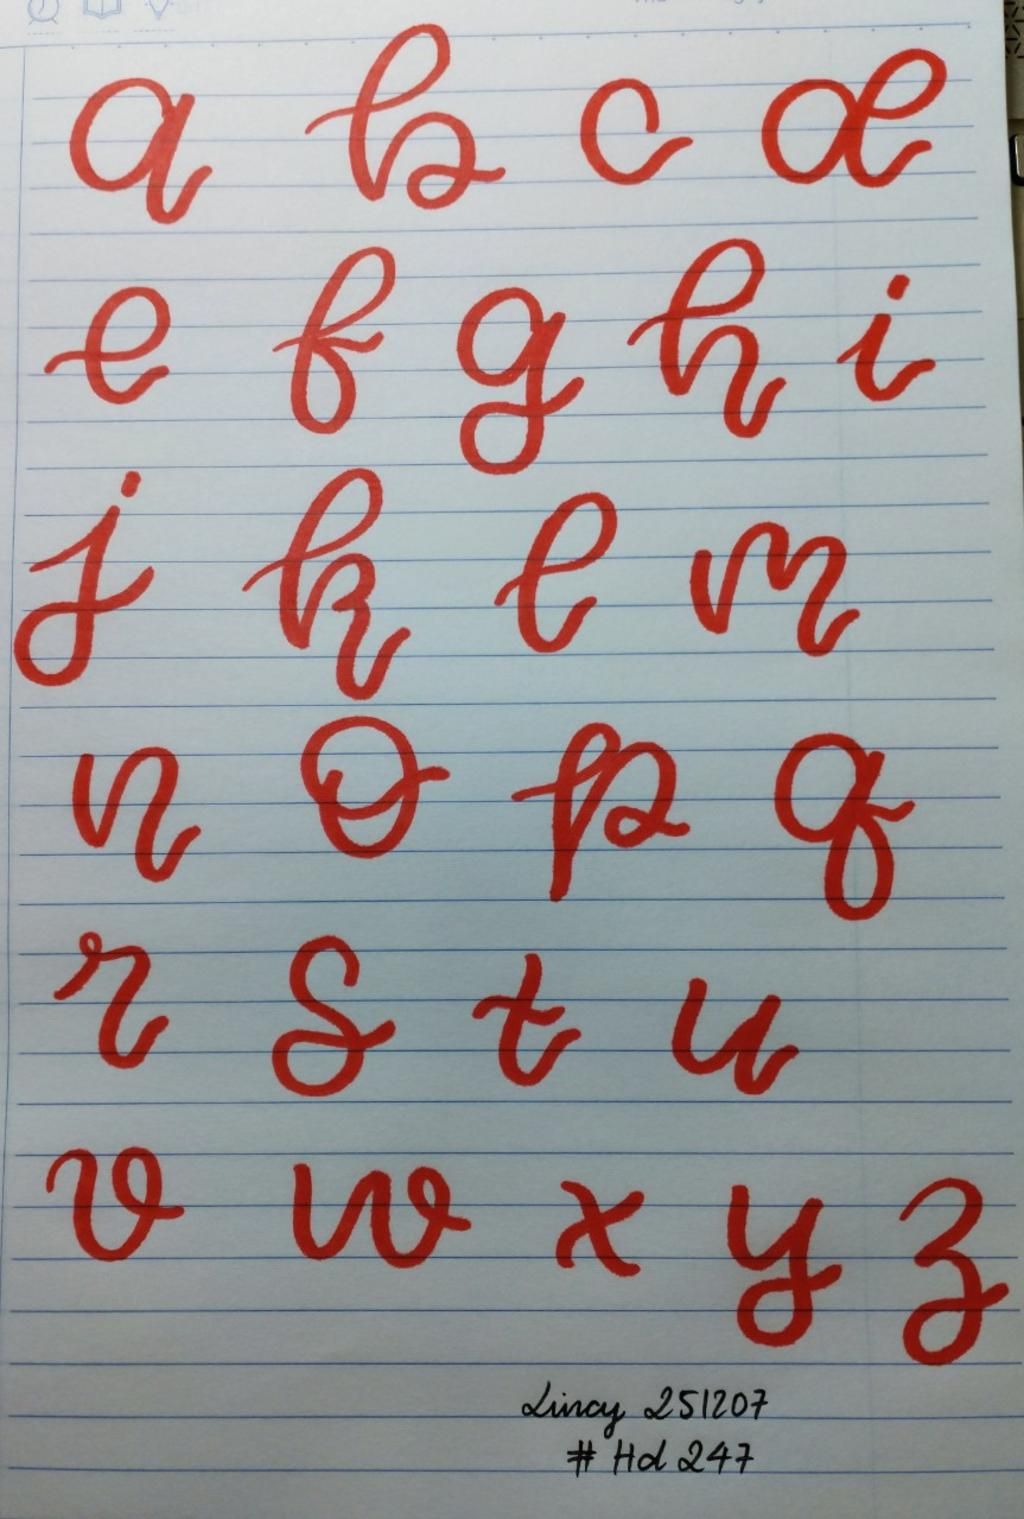 a b c d
e f g h i
j k l m
n o p q
r s t u
v w x y z
Lincy 251207
# Hd 247